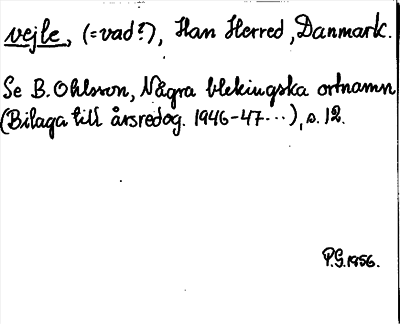 vejle, (=vad?), Han Herred, Danmark.
Se B. Ohlsson, Några blekingska ortnamn
(Bilaga till årsredog. 1946-47...), s. 12.
P.G. 1956.